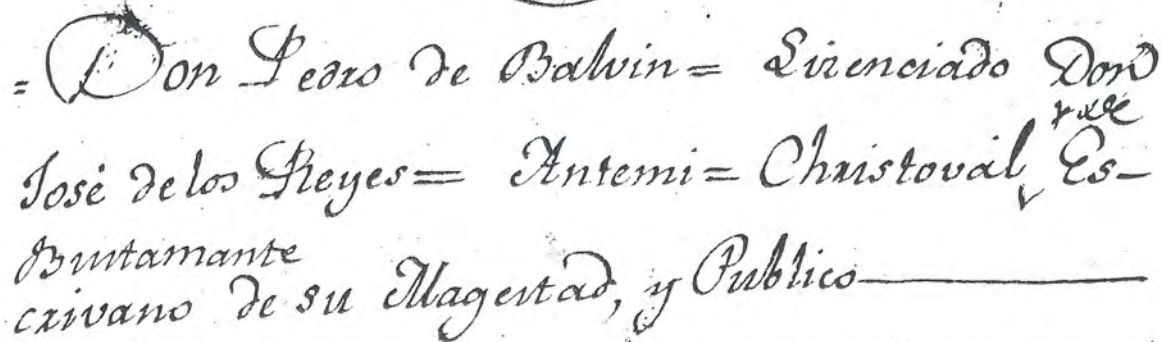 = Don Pedro de Balvin = Lizenciado Don
José de los Reyes = Antemi = Christoval, Es-
Bustamante
crivano de su Magestad, y Publico